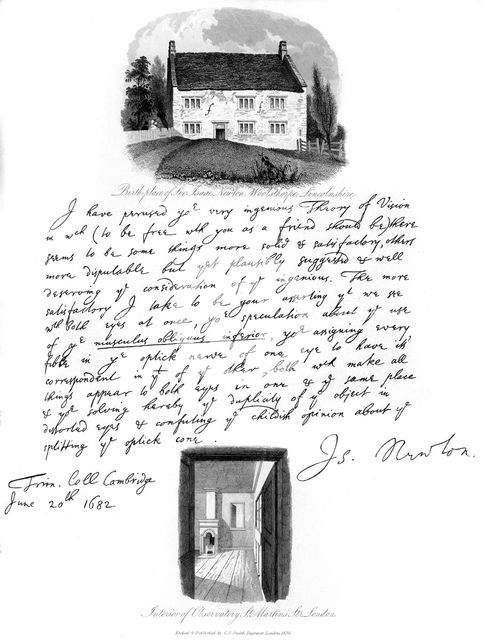 Birth place of Sir Isaac Newton, Woolsthorpe, Lincolnshire.
I have perused yor very ingenious Theory of Vision
in wch (to be free wth you as a friend should be) there
seems to be some things more solid & satisfactory, others
more disputable but yet plausibly suggested & well
deserving ye consideration of ye ingenious. The more
satisfactory I take to be your asserting yt we see
wth both eyes at once, yor speculation about ye use
of ye musculus obliquus inferior, yor assigning every
fibre in ye optick nerve of one eye to have its
correspondent in yt of ye other, both wch make all
things appear to both eyes in one & ye same place
& yor solving hereby ye duplicity of ye object in
distorted eyes & confuting ye childish opinion about ye
splitting ye optick cone.
Is. Newton.
Trin. Coll Cambridge
June 20th 1682
Interior of Observatory St. Martins Str. London.
Etched & Published by C.J. Smith, Engraver London 1836